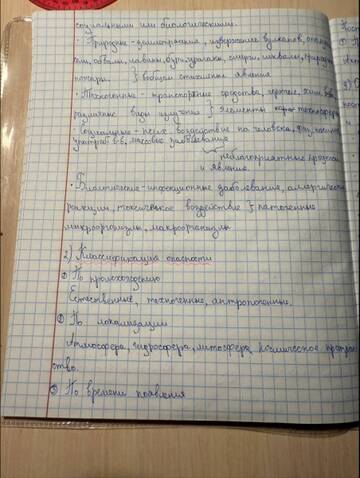 социальными или биологическими.
Природные - землетрясения, извержение вулканов, оползни,
сели, обвалы, лавины, бури, ураганы, смерчи, шквалы, природные
пожары. } Всеобщи стихийные явления
• Техногенные - транспортные средства, горючие, хим. в-ва
различные виды излучения } Элементы техносферы
Социальные - психо. воздействие на человека,
употреб. в-в, массовые заболевания
неблагоприятные процессы
и явления.
• Биологические - инфекционные заболевания, аллергические
реакции, токсическое воздействие } патогенные
микроорганизмы, макроорганизмы
2) Классификация опасности
① По происхождению
Естественные, техногенные, антропогенные.
② По локализации
Атмосфера, гидросфера, литосфера, космическое простран
ство.
③ По времени появления